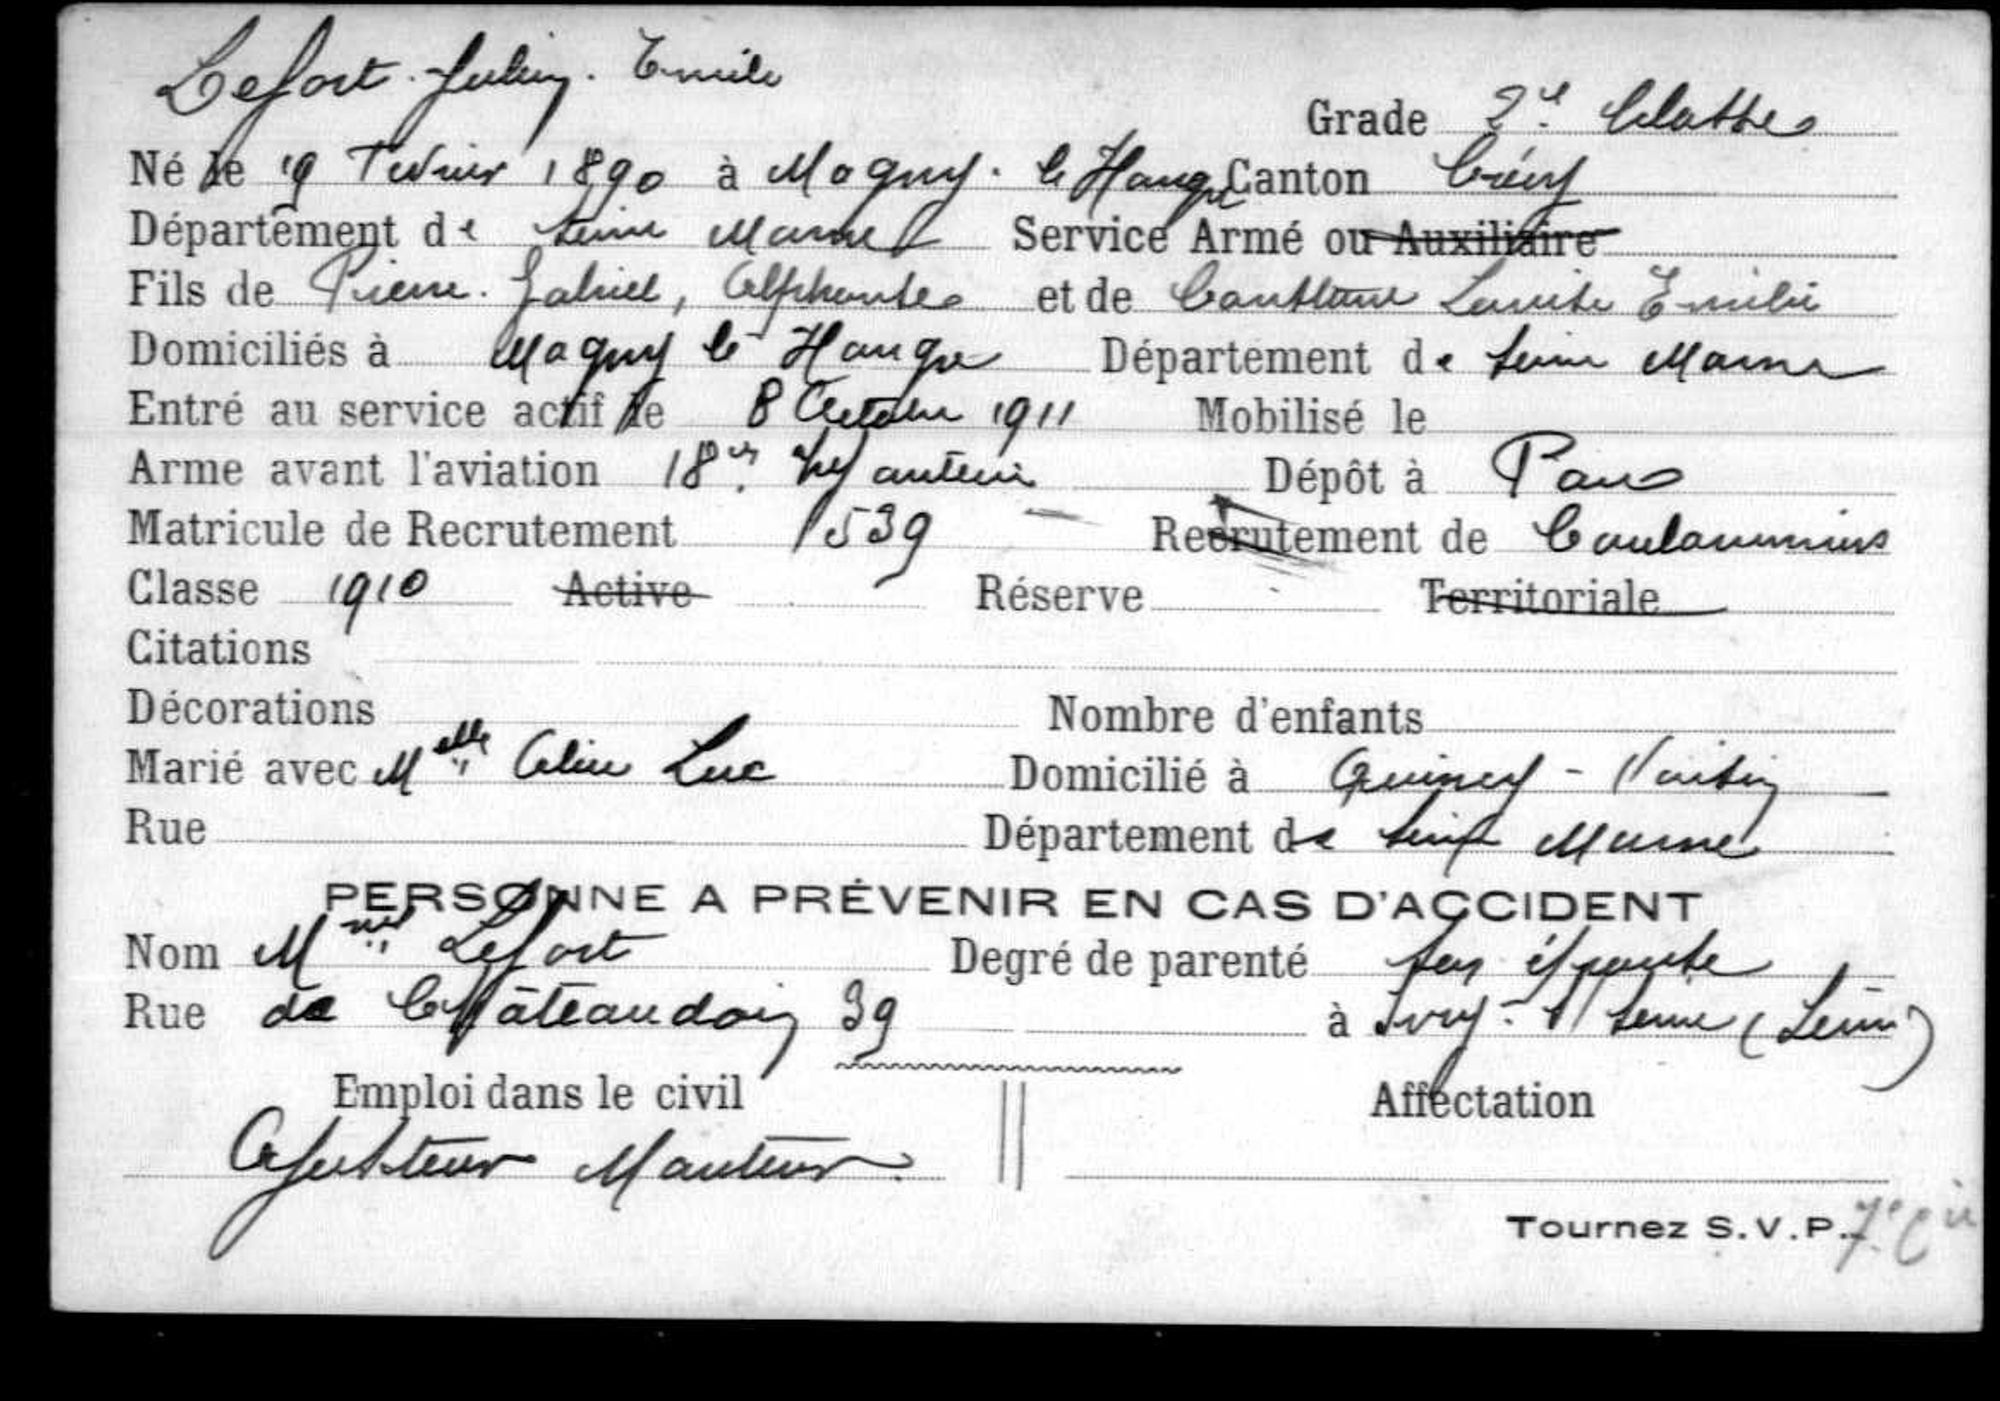 Lefort Julien. Emile
Grade 2e Classe
Né le 19 Février 1890 à Magny. le Hongre Canton Crécy
Département de Seine Marne Service Armé ou Auxiliaire
Fils de Pierre. Gabriel, Alphonse et de Constance Louise Emilie
Domiciliés à Magny le Hongre Département de Seine Marne
Entré au service actif le 8 Octobre 1911 Mobilisé le
Arme avant l'aviation 18e Infanterie Dépôt à Pau
Matricule de Recrutement 1539 Recrutement de Coulommiers
Classe 1910 Active Réserve Territoriale
Citations
Décorations Nombre d'enfants
Marié avec Melle Celine Luc Domicilié à Quincy - Voisin
Rue Département de Seine Marne
PERSONNE A PRÉVENIR EN CAS D'ACCIDENT
Nom Mme Lefort Degré de parenté son épouse
Rue de Châteaudoin 39 à Ivry - s/ Seine (Seine)
Emploi dans le civil Affectation
Ajusteur Monteur.
Tournez S.V.P. 7e